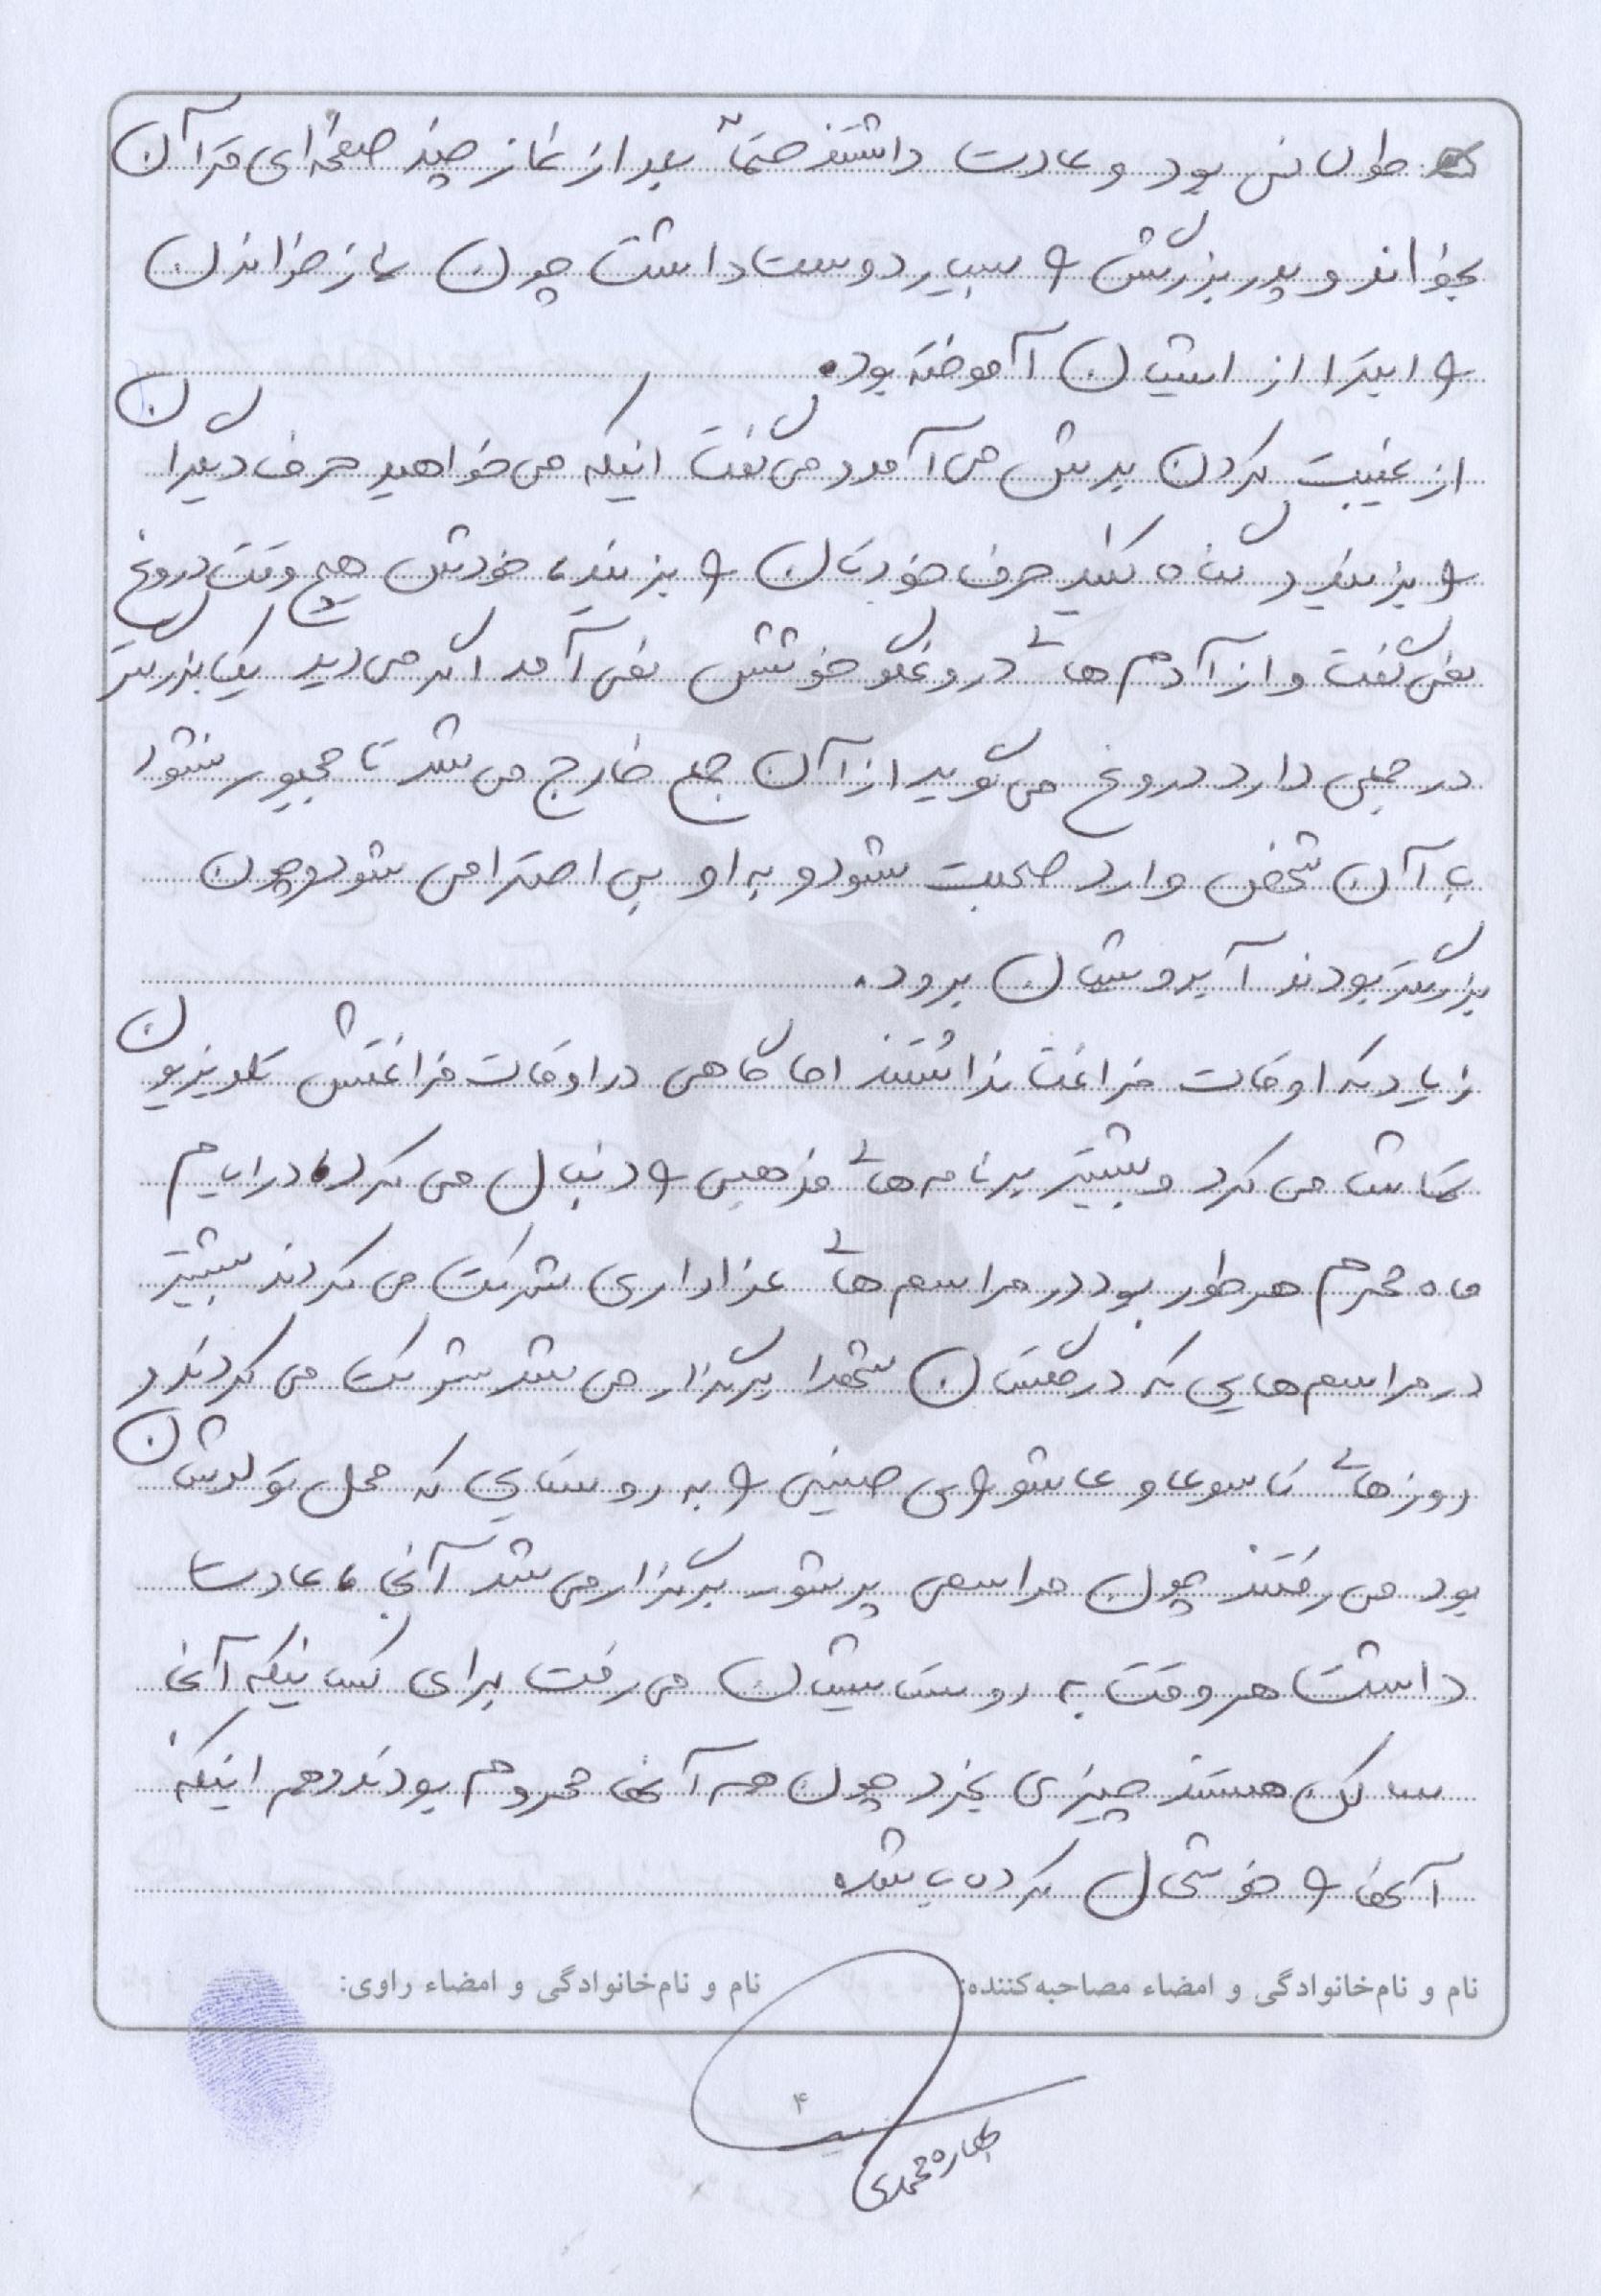 طولانی بود و عادت داشتند حتماً بعد از نماز چند صفحه‌ای قرآن
بخواند و پدربزرگش را بسیار دوست داشت چون نماز خواندن
را ابتدا از ایشان آموخته بود.
از غیبت کردن بدش می‌آمد و می‌گفت اینکه می‌خواهید حرف دیگران
را بزنید و گناه کنید حرف خودتان را بزنید، خودش هیچ وقت دروغ
نمی‌گفت و از آدم‌های دروغگو خوشش نمی‌آمد اگر می‌دید یک بزرگتر
در جمعی دارد دروغ می‌گوید از آن جمع خارج می‌شد تا مجبور نشود
با آن شخص وارد صحبت شود و به او بی احترامی شود و چون
بزرگتر بودند آبرویشان برود.
زیاد که اوقات فراغت نداشتند اما گاهی در اوقات فراغتش تلویزیون
تماشا می‌کرد و بیشتر برنامه‌های مذهبی را دنبال می‌کرد، در ایام
ماه محرم هر طور بود در مراسم‌های عزاداری شرکت می‌کردند بیشتر
در مراسم‌هایی که در گلستان شهدا برگزار می‌شد شرکت می‌کردند و
روزهای تاسوعا و عاشورای حسینی را به روستایی که محل تولدشان
بود می‌رفتند چون مراسمی پرشور برگزار می‌شد آنجا، عادت
داشت هر وقت به روستایشان می‌رفت برای کسانیکه آنجا
ساکن هستند چیزی بخرد چون هم آنها محروم بودند و هم اینکه
آنها را خوشحال کرده باشد.
نام و نام‌خانوادگی و امضاء مصاحبه‌کننده: نام و نام‌خانوادگی و امضاء راوی:
۴
محمدی